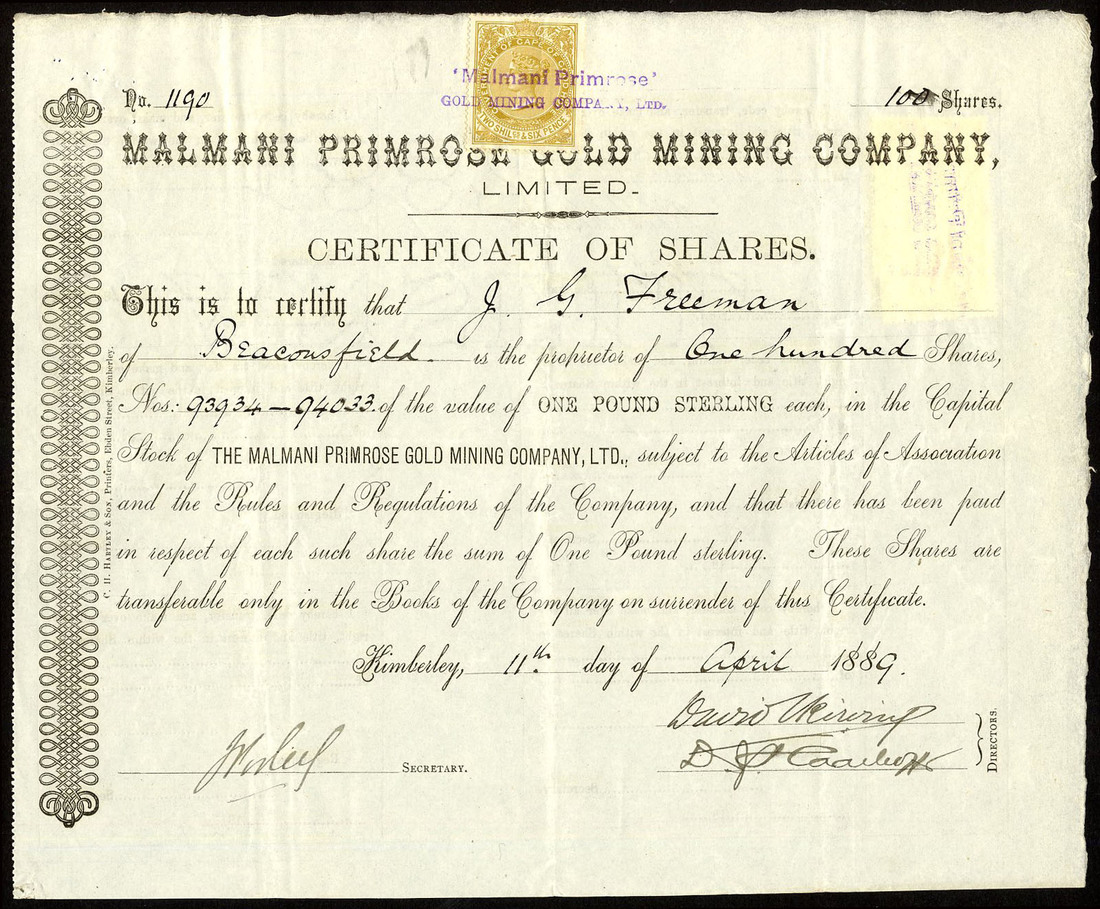 GOVERNMENT OF CAPE OF GOOD HOPE
TWO SHILS & SIX PENCE
'Malmani Primrose'
GOLD MINING COMPANY, LTD.
No. 1190
100 Shares.
MALMANI PRIMROSE GOLD MINING COMPANY,
LIMITED.
CERTIFICATE OF SHARES.
This is to certify that J. G. Freeman
of Beaconsfield is the proprietor of One hundred Shares,
Nos: 93934 — 94033. of the value of ONE POUND STERLING each, in the Capital
Stock of THE MALMANI PRIMROSE GOLD MINING COMPANY, LTD., subject to the Articles of Association
and the Rules and Regulations of the Company, and that there has been paid
in respect of each such share the sum of One Pound sterling. These Shares are
transferable only in the Books of the Company on surrender of this Certificate.
Kimberley, 11th day of April 1889.
David
D. J.
DIRECTORS.
SECRETARY.
C. H. HARTLEY & SON, Printers, Ebden Street, Kimberley.